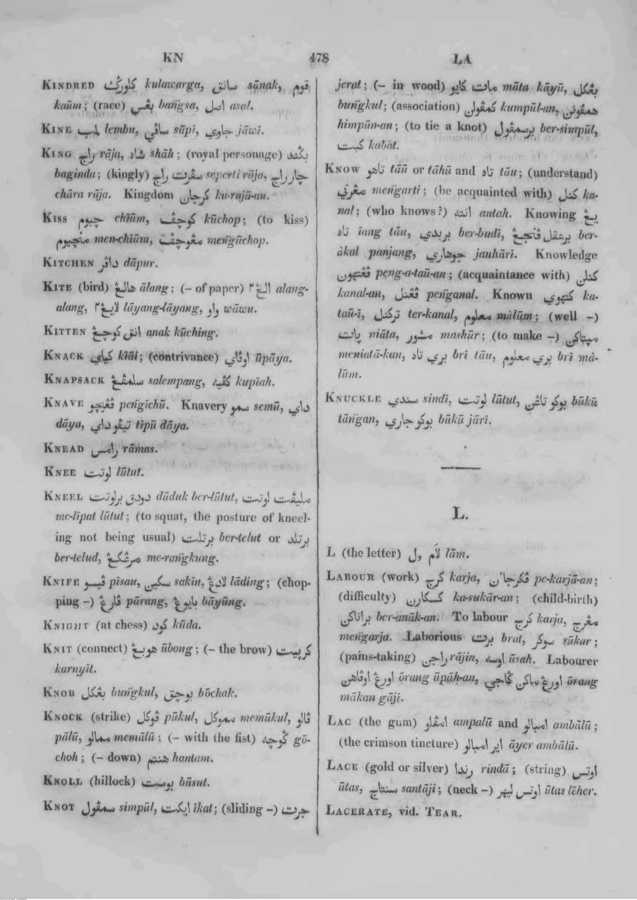 KN
478
LA
KINDRED کلورگ kulawarga, سانق sānak, قوم
kaūm; (race) بڠس bangsa, اصل asal.
KINE لمب lembu, ساڤي sāpi, جاوي jāwi.
KING راج rāja, شاه shāh; (royal personage) بگند
baginda; (kingly) سڤرت راج seperti rāja, چار راج
chāra rāja. Kingdom کرجان ka-rajā-an.
KISS چيوم chīum, کوچڤ kūchop; (to kiss)
منچيوم men-chīum, مڠوچڤ mengūchop.
KITCHEN داڤر dāpur.
KITE (bird) هالڠ ālang; (– of paper) الڠ٢ alang-
alang, لايڠ٢ lāyang-lāyang, واو wāwu.
KITTEN انق کوچيڠ anak kūching.
KNACK کياي kīaī; (contrivance) اوڤاي ūpāya.
KNAPSACK سلمڤڠ salempang, کڤيه kupīah.
KNAVE ڤڠيچو pengīchū. Knavery سمو semū, داي
dāya, تيڤو داي tīpū dāya.
KNEAD رامس rāmas.
KNEE لوتت lūtut.
KNEEL دودق برلوتت dūduk ber-lūtut, مليڤت لوتت
me-līpat lūtut; (to squat, the posture of kneel-
ing not being usual) برتلت ber-telut or برتلد
ber-telud, مرڠکڠ me-rangkung.
KNIFE ڤيسو pīsau, سکين sakīn, لادڠ lāding; (chop-
ping –) ڤارڠ pārang, بايوڠ bāyūng.
KNIGHT (at chess) کود kūda.
KNIT (connect) هوبڠ ūbong; (– the brow) کرڽيت
karnyit.
KNOB بڠکل bungkul, بوچق bōchak.
KNOCK (strike) ڤوکل pūkul, مموکل memūkul, ڤالو
pālū, ممالو memālū; (– with the fist) گوچه gō-
choh; (– down) هنتم hantam.
KNOLL (hillock) بوست būsut.
KNOT سمڤول simpūl, ايکت īkat; (sliding –) جرت
jerat; (– in wood) مات کايو māta kāyū, بڠکل
bungkul; (association) کمڤولن kumpūl-an, همڤونن
himpūn-an; (to tie a knot) برسمڤول ber-simpūl,
کبت kabat.
KNOW تاهو tāū or tāhū and تاو tāu; (understand)
مڠرتي mengarti; (be acquainted with) کنل ka-
nal; (who knows?) انته antah. Knowing يڠ
تاو iang tāu, بربدي ber-budi, برعقل ڤنجڠ ber-
ākal panjang, جوهاري jauhāri. Knowledge
ڤڠتهون peng-a-taū-an; (acquaintance with) کنلن
kanal-an, ڤڠنل penganal. Known کتهوي ka-
taū-ī, ترکنل ter-kanal, معلوم mālūm; (well –)
ڽات niāta, مشور mashūr; (to make –) مڽتاکن
meniatā-kan, بري تاو bri tāu, بري معلوم bri mā-
lūm.
KNUCKLE سندي sindi, لوتت lūtut, بوکو تاڠن būkū
tāngan, بوکو جاري būkū jāri.
L.
L (the letter) ل or لام lām.
LABOUR (work) کرج karja, ڤکرجاٴن pe-karjā-an;
(difficulty) کسکارن ka-sukār-an; (child-birth)
براناکن ber-anāk-an. To labour کرج karja, مڠرج
mengarja. Laborious برت brat, سوکر sūkar;
(pains-taking) راجن rājin, اوسه ūsah. Labourer
اورڠ اوڤاهن ōrang ūpāh-an, اورڠ ماکن گاجي ōrang
mākan gāji.
LAC (the gum) امڤلو ampalū and امبالو ambālū;
(the crimson tincture) اير امبالو āyer ambālū.
LACE (gold or silver) رندا rindā; (string) اوتس
ūtas, سنتاج santāji; (neck –) اوتس ليهر ūtas lēher.
LACERATE, vid. TEAR.